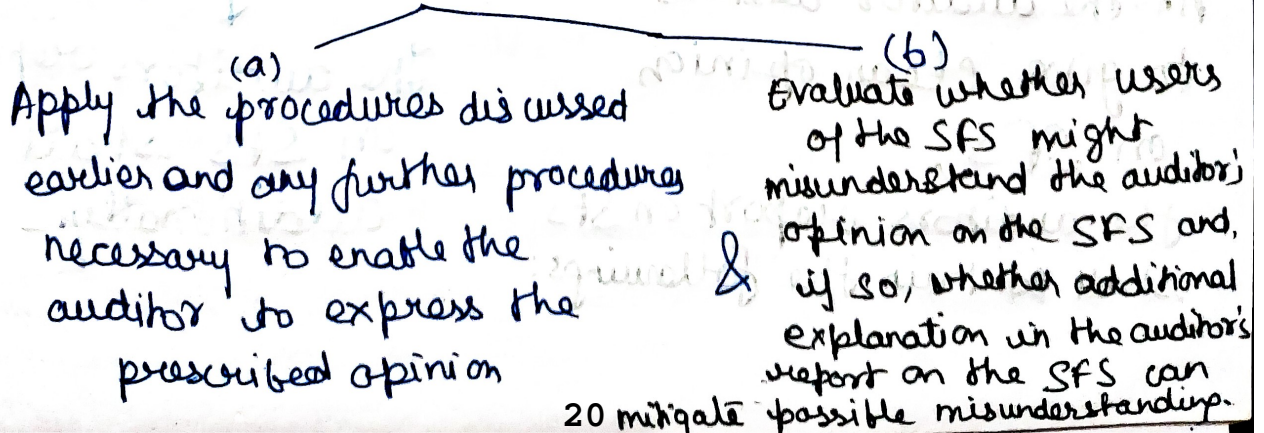 (a)
Apply the procedures discussed
earlier and any further procedures
necessary to enable the
auditor to express the
prescribed opinion
&
(b)
Evaluate whether users
of the SFS might
misunderstand the auditor's
opinion on the SFS and,
if so, whether additional
explanation in the auditor's
report on the SFS can
20 mitigate possible misunderstanding.